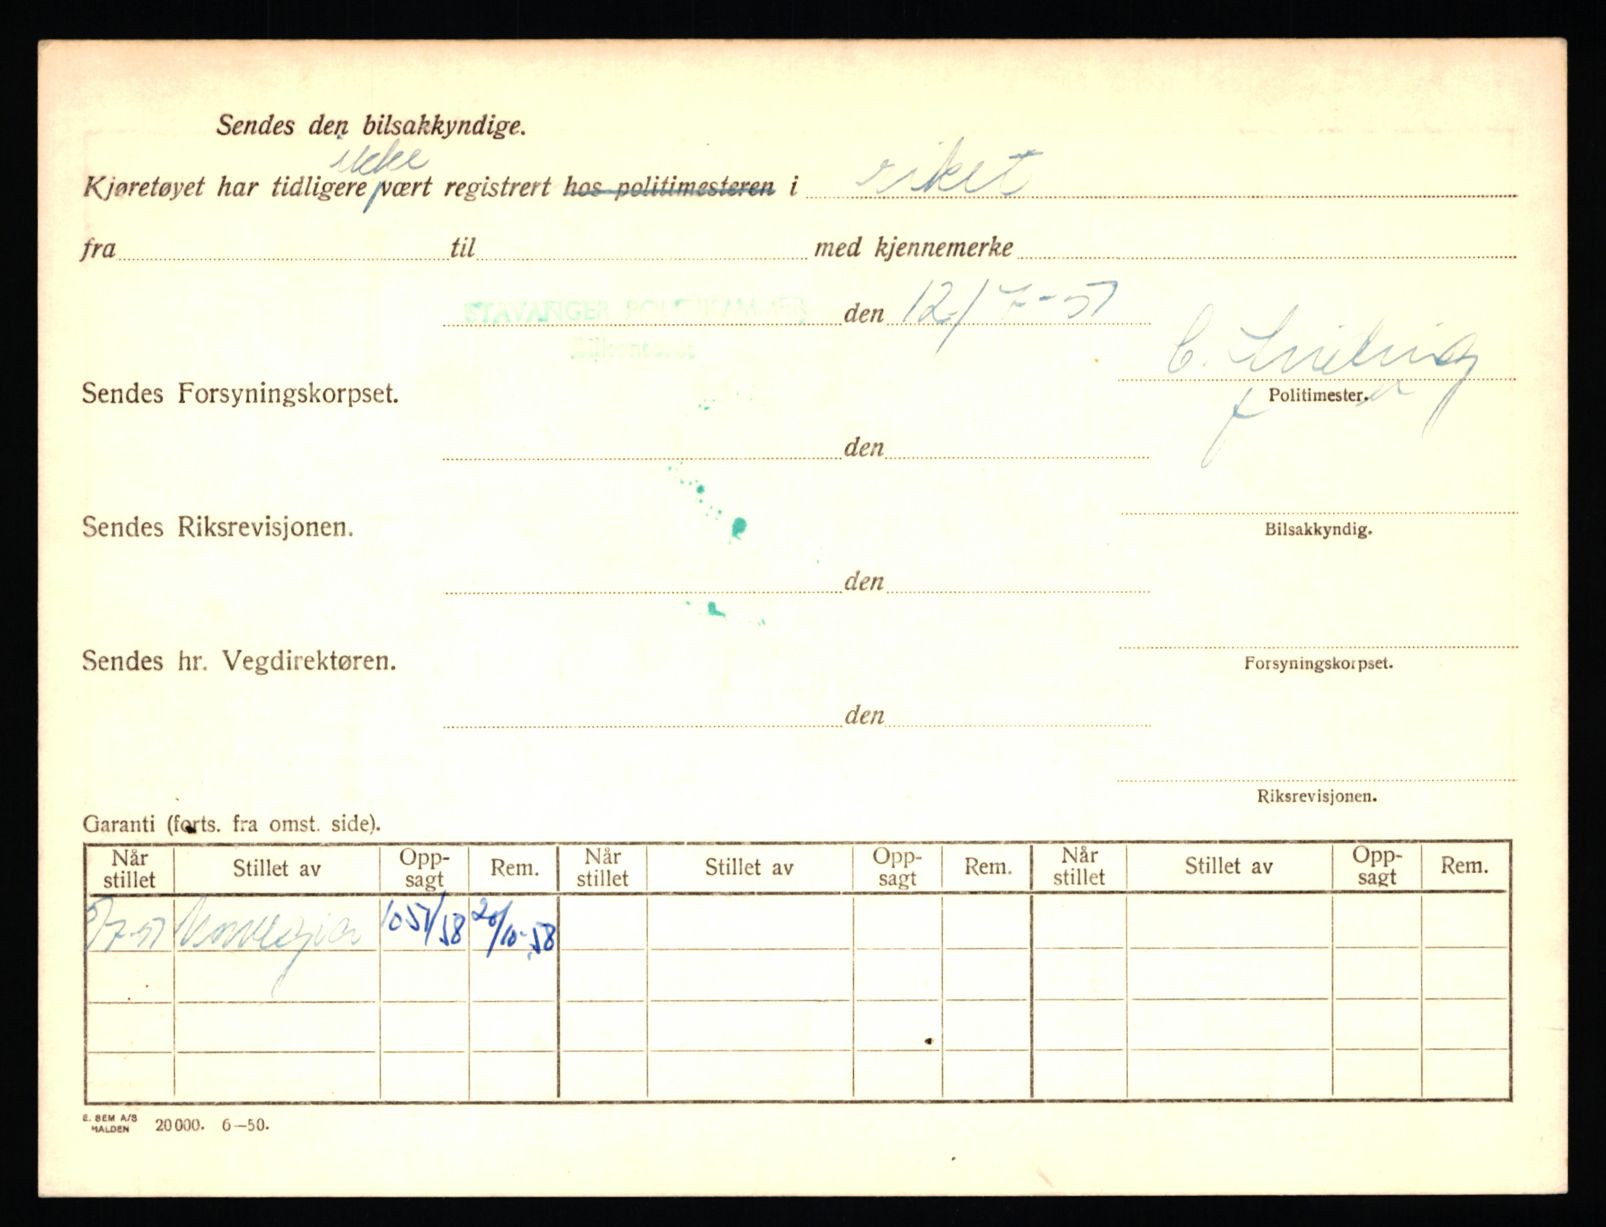 Sendes den bilsakkyndige.
ikke
Kjøretøyet har tidligere vært registrert hos politimesteren i riket
fra til med kjennemerke
STAVANGER POLITIKAMMER den 12/7-51
Bilkontoret
C.
Sendes Forsyningskorpset. Politimester.
den
Sendes Riksrevisjonen. Bilsakkyndig.
den
Sendes hr. Vegdirektøren. Forsyningskorpset.
den
Riksrevisjonen.
Garanti (forts. fra omst. side).
Når stillet Stillet av Opp-sagt Rem. Når stillet Stillet av Opp-sagt Rem. Når stillet Stillet av Opp-sagt Rem.
5/7-51 Norvegia 20/10-58
E. SEM A/S
HALDEN 20000. 6—50.